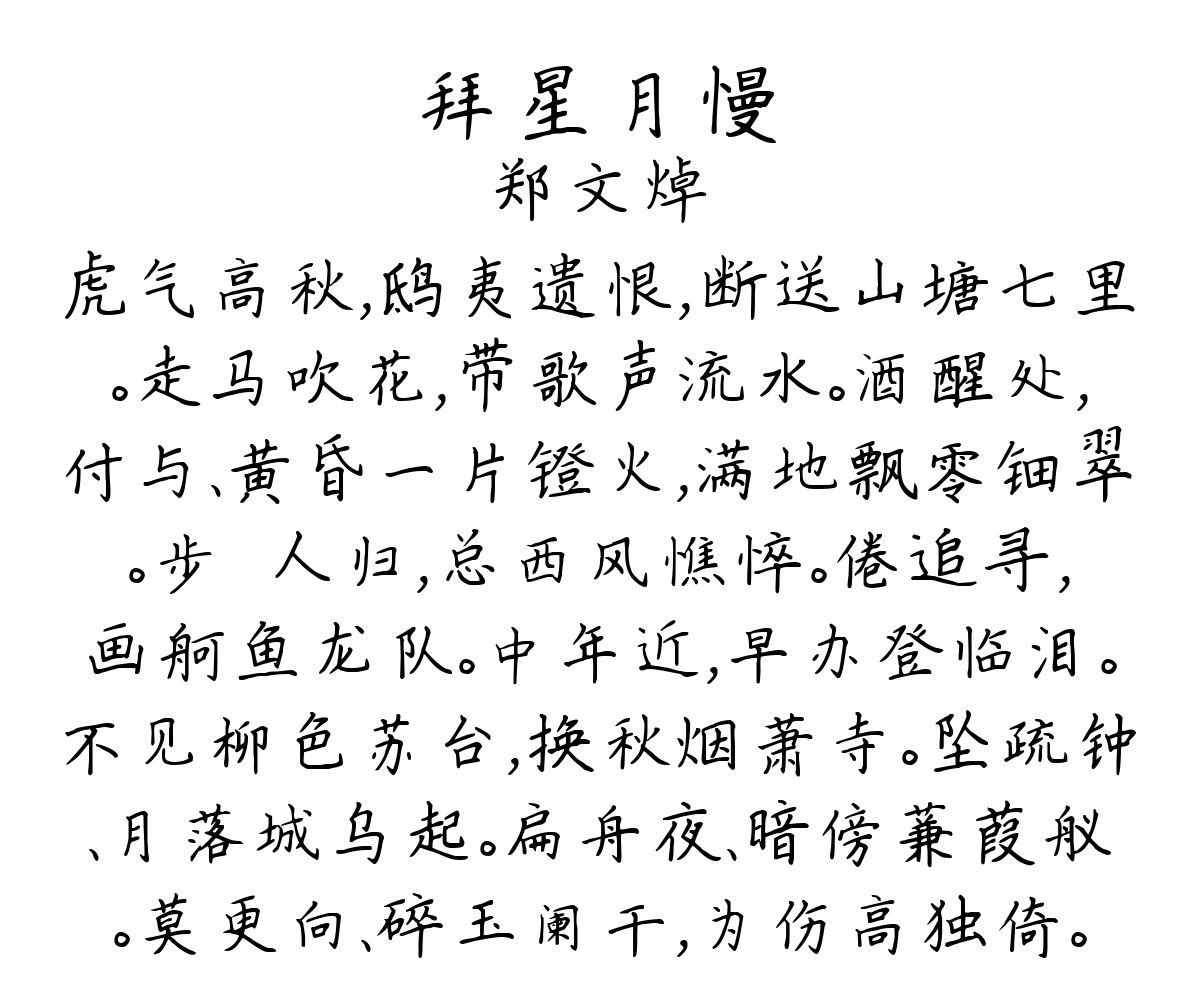 拜星月慢
郑文焯
虎气高秋,鸱夷遗恨,断送山塘七里
。走马吹花,带歌声流水。酒醒处,
付与、黄昏一片镫火,满地飘零钿翠
。步 人归,总西风憔悴。倦追寻,
画舸鱼龙队。中年近,早办登临泪。
不见柳色苏台,换秋烟萧寺。坠疏钟
、月落城乌起。扁舟夜、暗傍蒹葭舣
。莫更向、碎玉阑干,为伤高独倚。